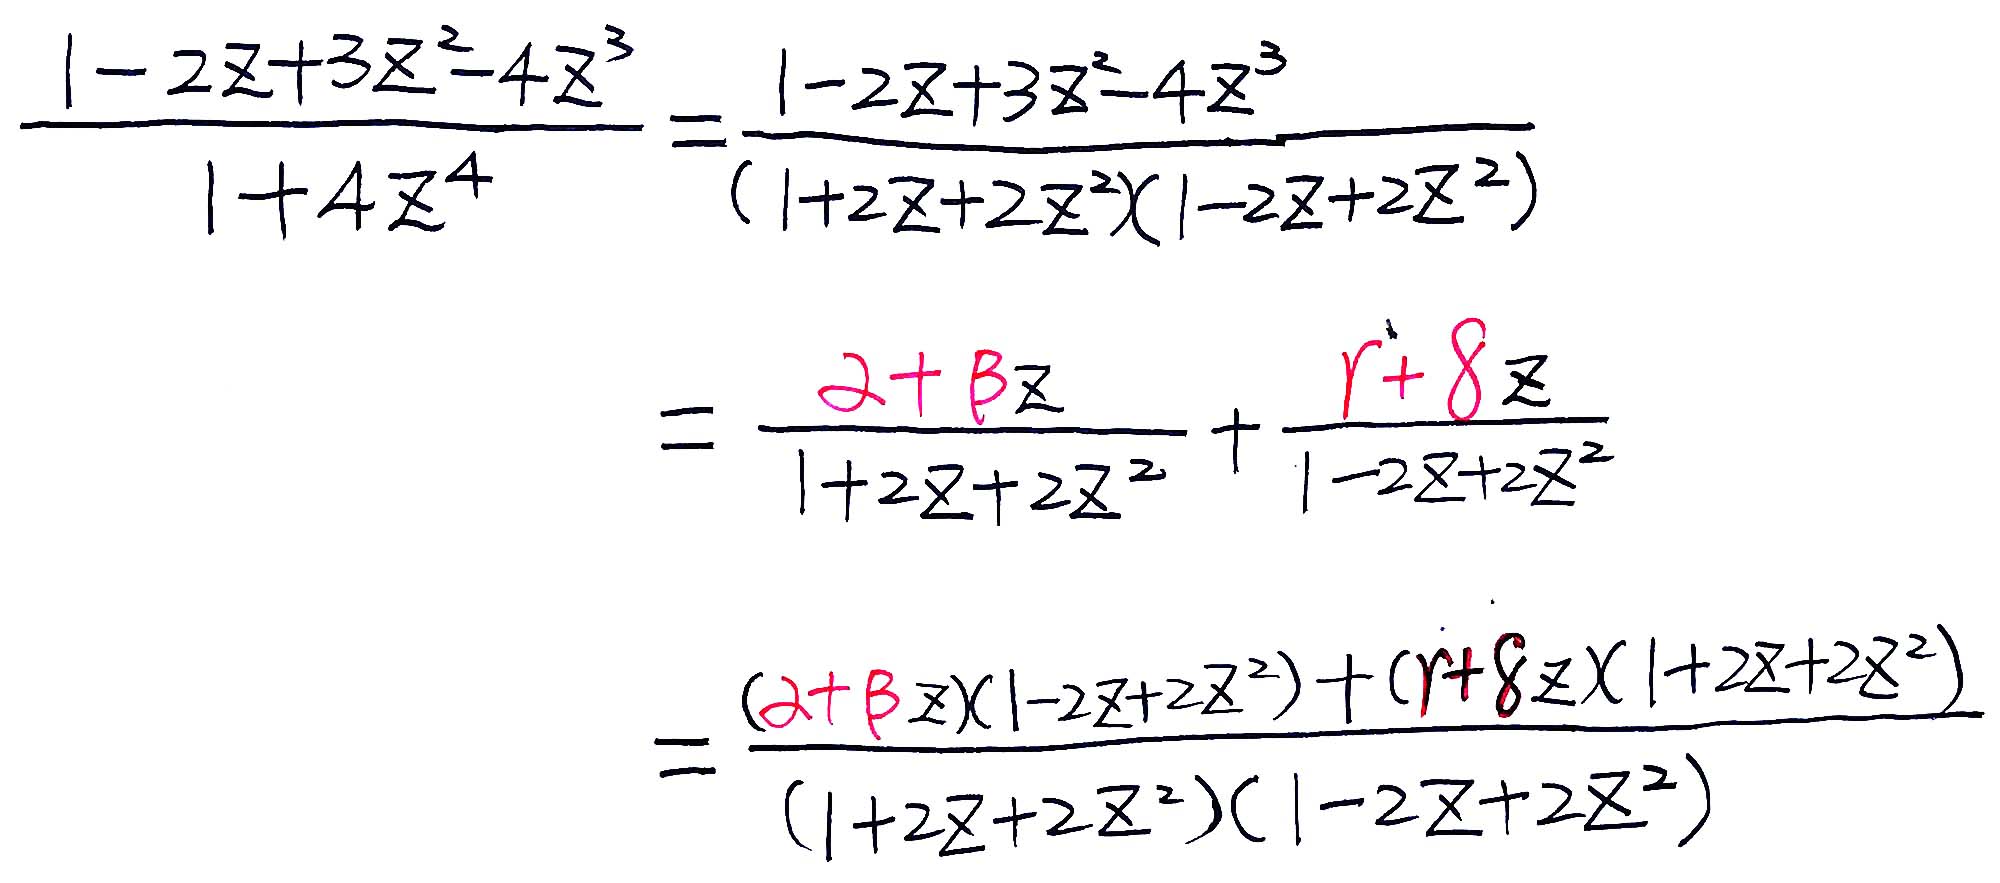 \frac{1-2z+3z^2-4z^3}{1+4z^4} = \frac{1-2z+3z^2-4z^3}{(1+2z+2z^2)(1-2z+2z^2)}
= \frac{α+βz}{1+2z+2z^2} + \frac{γ+δz}{1-2z+2z^2}
= \frac{(α+βz)(1-2z+2z^2)+(γ+δz)(1+2z+2z^2)}{(1+2z+2z^2)(1-2z+2z^2)}